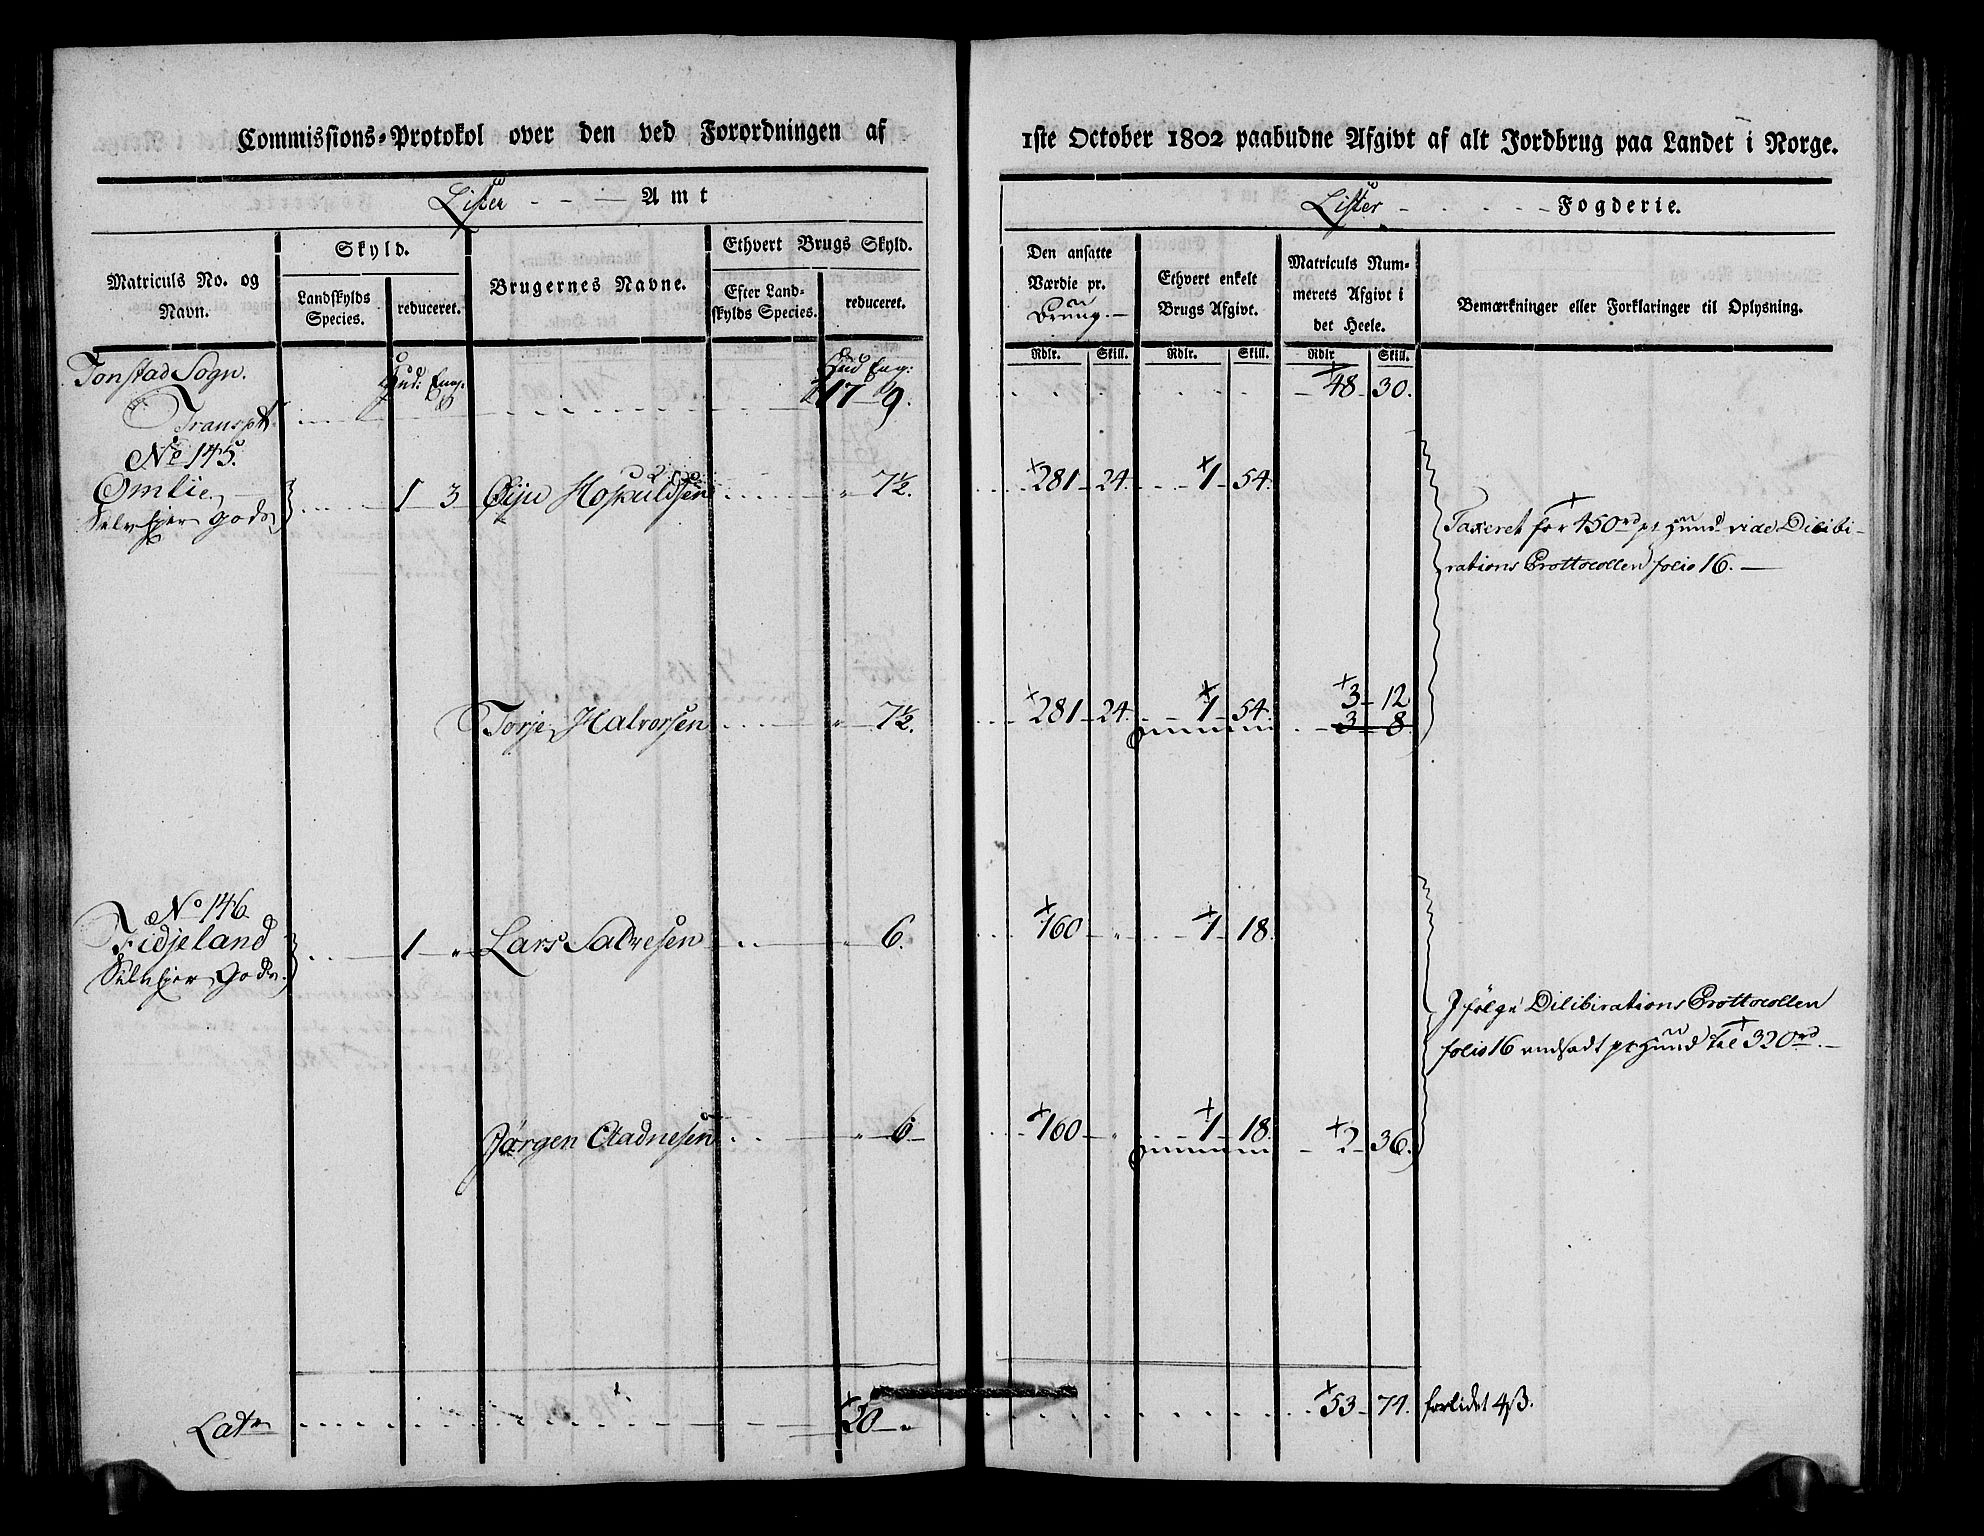 Commissions-Protokol over den ved Forordningen af
Lister - - - Amt
Matriculs No. og Navn.
Skyld.
Landskylds Species.
reduceret.
Brugernes Navne.
Ethvert Brugs Skyld.
Efter Landskylds Species.
reduceret.
Tonstad Sogn.
Hud: Eng:
Hud Eng:
Transpt. 17 9.
No 145.
Omlie
Selveier gods 1 3 Øiju Hoskuldsen " 7½.
Torje Halvorsen " 7½.
No 146
Fidjeland
Selveier Gods. 1 " Lars Salvesen " 6.
Jörgen Aadnesen " 6
Lats 20 "
1ste October 1802 paabudne Afgivt af alt Jordbrug paa Landet i Norge.
Lister - - - Fogderie.
Den ansatte Værdie pr. Brug.
Ethvert enkelt Brugs Afgivt.
Matriculs Nummerets Afgivt i det Heele.
Bemærkninger eller Forklaringer til Oplysning.
Rdlr. Skill. Rdlr. Skill. Rdlr Skill.
48 30.
281 24. 1 54.
Taxeret for 450rd pr Hund vide Dilibi-
rations Prottocollen folio 16.
281 24. 1 54. 3 12
3 8
160 " 1 18.
I følge Dilibirations Prottocollen
folio 16 ansadt pr Hund til 320rd.
160 " 1 18. 2 36.
53 74. forlidet 4ß.